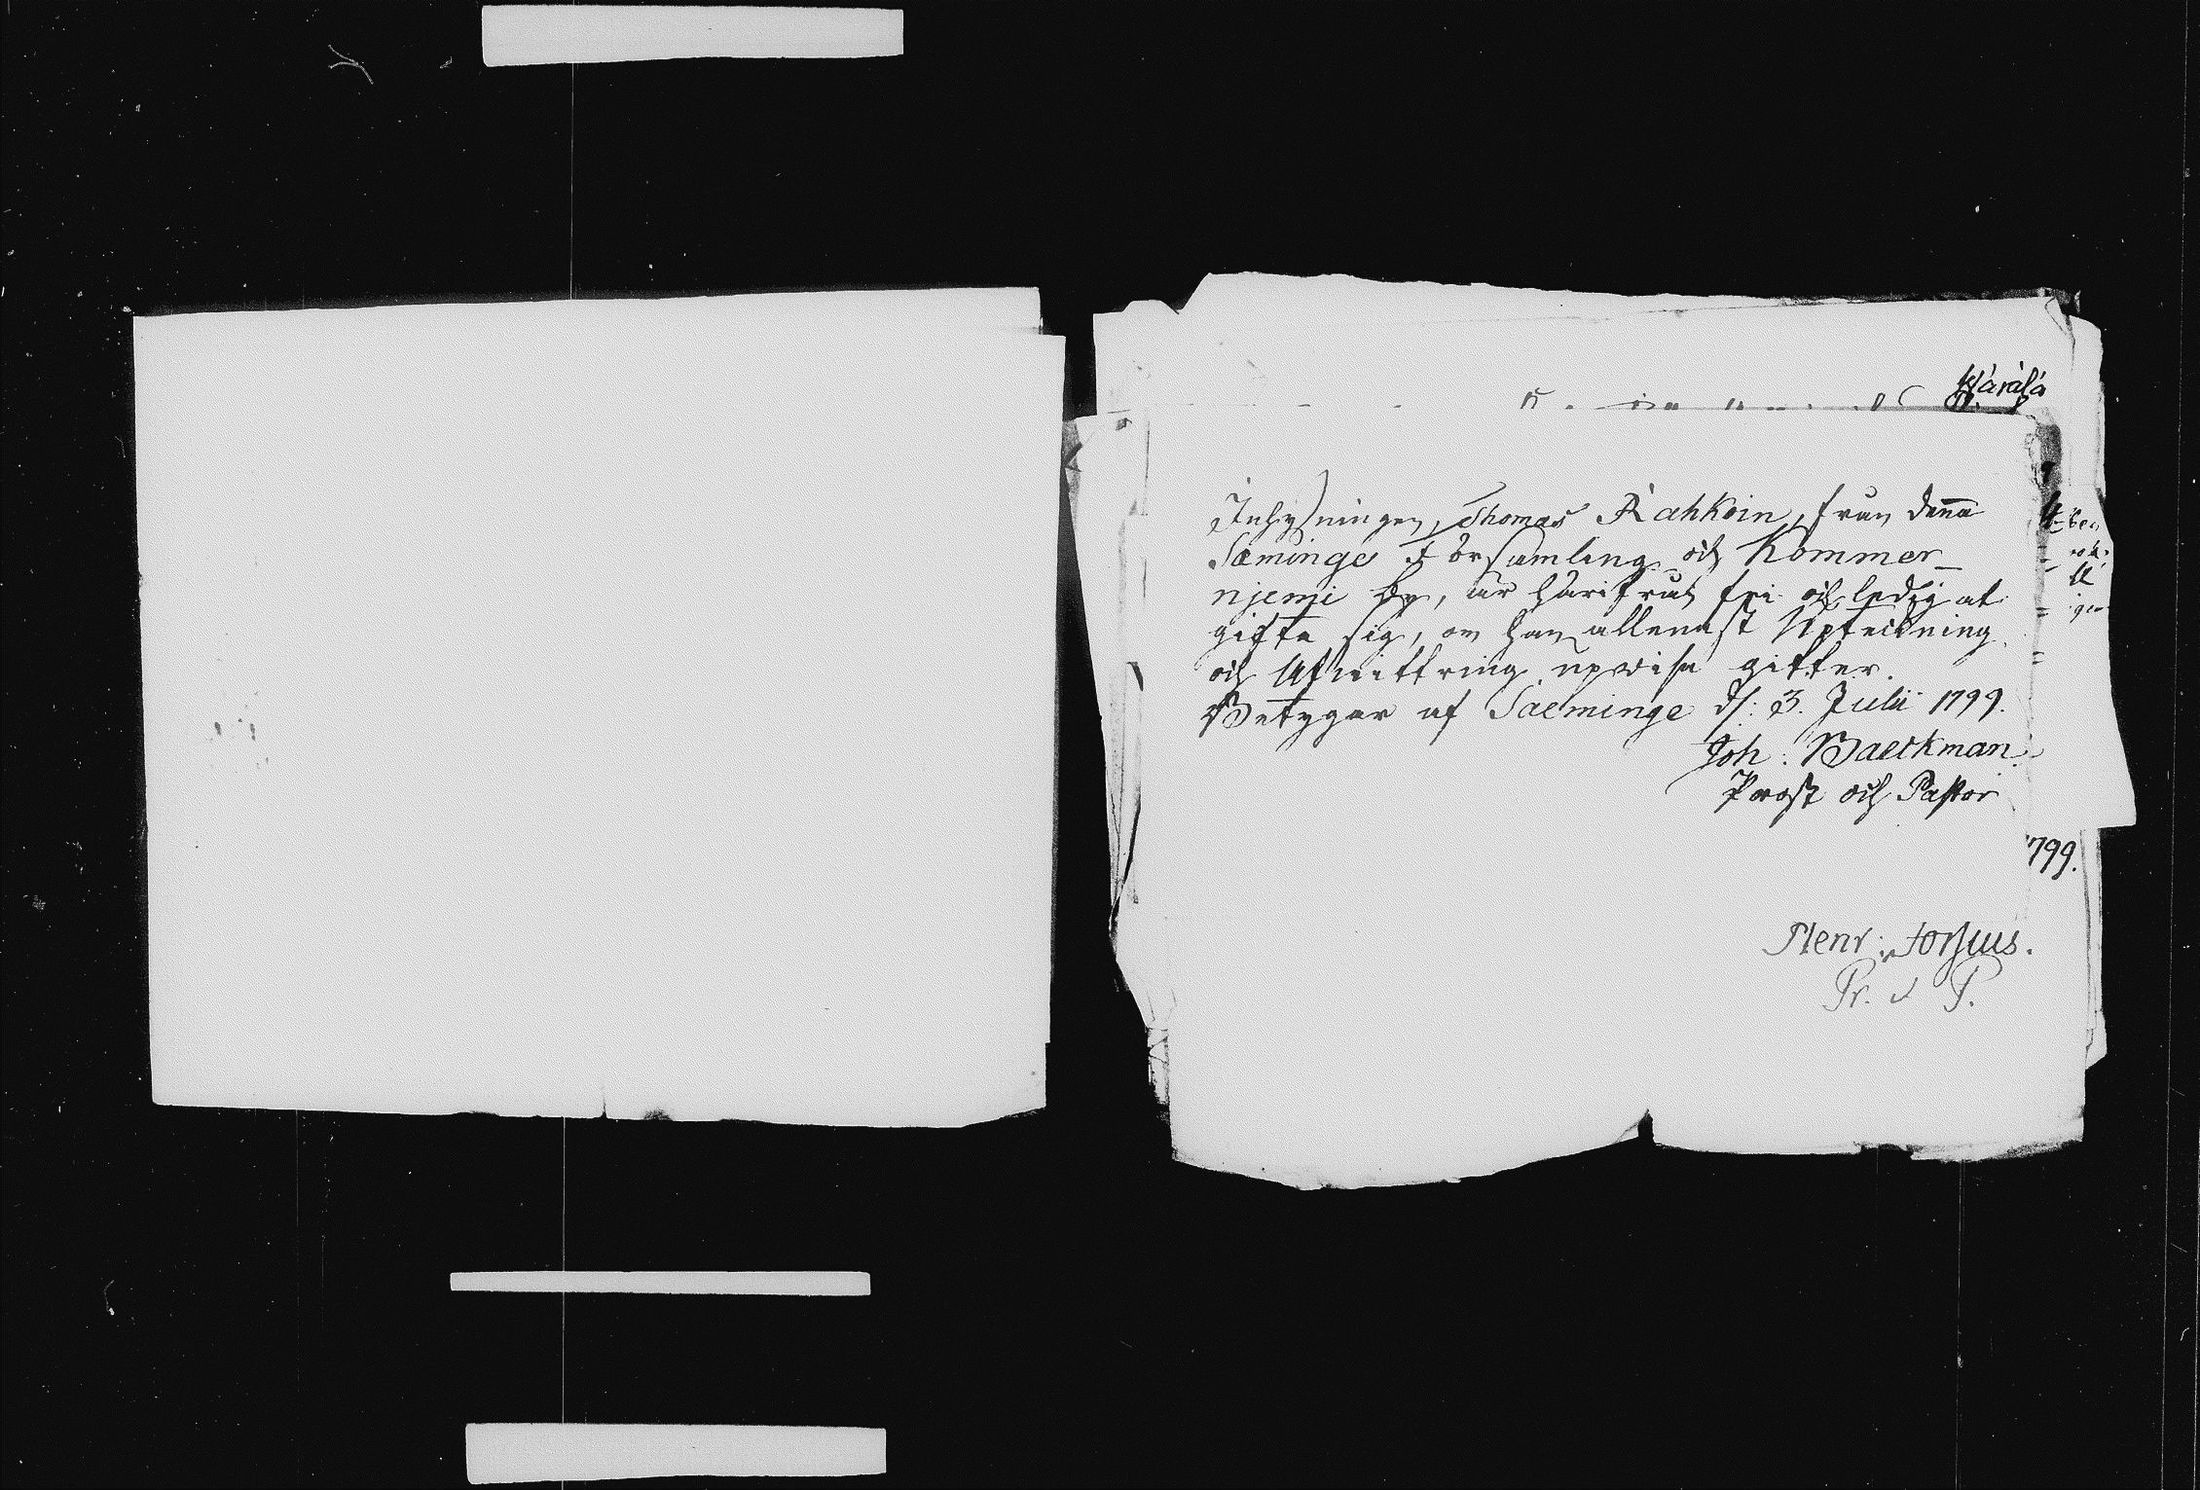 Inhysningen, Thomas Rahkoin, från denna
Sæminge Församling och Kommer-
njemi by, är härifrån fri och ledig at
gifta sig, om han allenast Upteckning
och Afwittring upwisa gitter.
Betygar af Saeminge d: 3. Julii 1799.
Joh: Baeckman.
Prost och Pastor
1799.
Henr:
Pr. P.